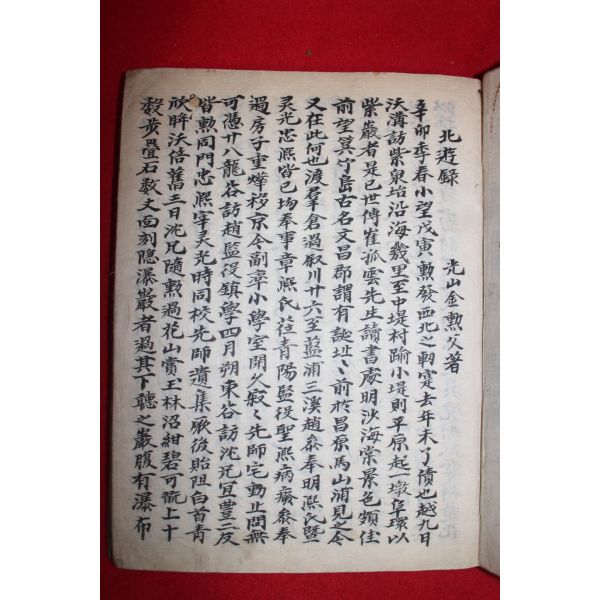 北遊錄
光山金勳父著
辛卯季春小望戊寅勳發西北之軔寔去年未了債也越九日
沃溝訪紫泉坮沿海幾里至中堤村踰小堤則平原起一墩阜環以
紫巖者是已世傳崔孤雲先生讀書處明沙海棠景色頗佳
前望箕竹島古名文昌郡謂有誕址〻前於昌原馬山浦見之今
又在此何也渡羣倉過叙川廿六至藍浦三溪趙叅奉明熙氏曁
灵光忠熙皆已場奉事章熙氏莅青陽監役聖熙病廢叅奉
過房子重燁移京令副韋小學室開久寂〻先師宅動止問無
可憑廿八龍谷訪趙監役鎮學四月朔東谷訪沈兄宜豊二反
皆勳同門忠熙宰灵光時同校先師遺集厥後貽阻白首青
欣眸沃倍舊三日沈兄隨勳過花山賞玉林沼紺碧可翫上十
數步疊石数丈面刻隱瀑巖者過其下聽之巖腹有瀑布